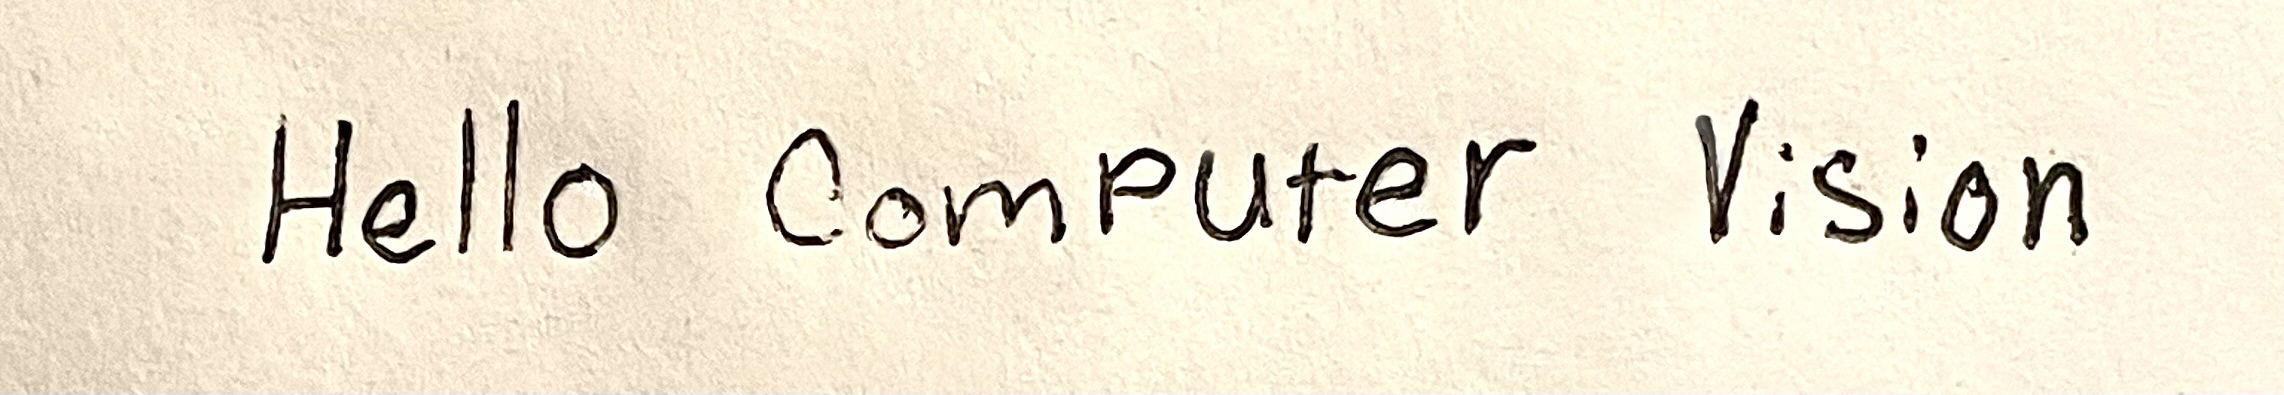 Hello Computer Vision